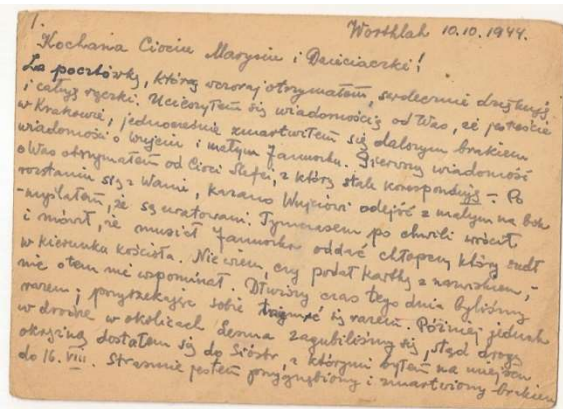 1.
Worthlah 10.10.1944.
Kochana Ciociu Marysiu i Dzieciaczki!
Za pocztówkę, którą wczoraj otrzymałem, serdecznie dziękuję
i całuję rączki. Ucieszyłem się wiadomością od Was, że jesteście
w Krakowie, jednocześnie zmartwiłem się dalszym brakiem
wiadomości o Wujciu i małym Januszku. Pierwszą wiadomość
o Was otrzymałem od Cioci Stefci, z którą stale koresponduję – Po
rozstaniu się z Wami, kazano Wujciowi odejść z małym na bok
– myślałem, że są uratowani. Tymczasem po chwili wrócił
i mówił, że musiał Januszka oddać chłopcu który szedł
w kierunku kościoła. Nie wiem, czy podał kartkę z nazwiskiem, –
nic o tem nie wspominał. Dłuższy czas tego dnia byliśmy
razem; przyrzekając sobie trzymać się razem. Później jednak
w drodze w okolicach zagubiliśmy się, stąd drogą
okrężną dostałem się do Sióstr, z którymi byłem na miejscu
do 16.VIII. Strasznie jestem przygnębiony i zmartwiony brakiem